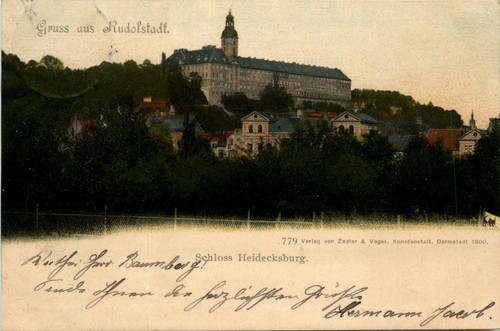 Gruss aus Rudolstadt.
779 Verlag von Zedler & Vogel, Kunstanstalt, Darmstadt 1900.
Schloss Heidecksburg.
Werther Herr Baumberg!
sende Ihnen die herzlichsten Grüße
Hermann Jacob.